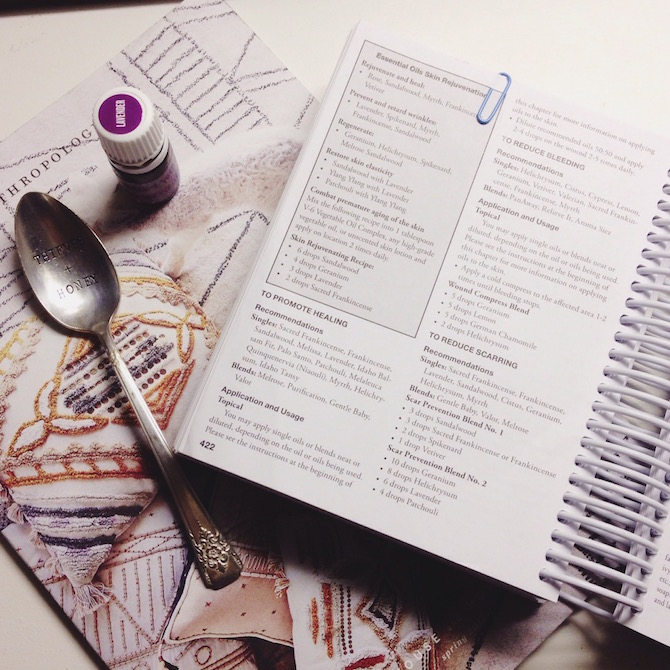 LAVENDER
THROPOLOG
THYME
+
HONEY
Essential Oils Skin Rejuvenation
Rejuvenate and heal:
• Rose, Sandalwood, Myrrh, Frankincense
Vetiver
Prevent and retard wrinkles:
• Lavender, Spikenard, Myrrh,
Frankincense, Sandalwood
Regenerate:
• Geranium, Helichrysum, Spikenard,
Melrose Sandalwood
Restore skin elasticity
• Sandalwood with Lavender
• Ylang Ylang with Lavender
• Patchouli with Ylang Ylang
Combat premature aging of the skin
Mix the following recipe into 1 tablespoon
V-6 Vegetable Oil Complex, any high-grade
vegetable oil, or unscented skin lotion and
apply on location 2 times daily.
Skin Rejuvenating Recipe:
• 6 drops Sandalwood
• 4 drops Geranium
• 3 drops Lavender
• 2 drops Sacred Frankincense
TO PROMOTE HEALING
Recommendations
Singles: Sacred Frankincense, Frankincense,
Sandalwood, Melissa, Lavender, Idaho Bal-
sam Fir, Palo Santo, Patchouli, Melaleuca
Quinquenervia (Niaouli), Myrrh, Helichry-
sum, Idaho Tansy
Blends: Melrose, Purification, Gentle Baby,
Valor
Application and Usage
Topical
You may apply single oils or blends neat or
diluted, depending on the oil or oils being used.
Please see the instructions at the beginning of
422
this chapter for more information on applying
oils to the skin.
• Dilute recommended oils 50:50 and apply
2-4 drops on the wound 2-5 times daily.
TO REDUCE BLEEDING
Recommendations
Singles: Helichrysum, Cistus, Cypress, Lemon,
Geranium, Vetiver, Valerian, Sacred Frankin-
cense, Frankincense, Myrrh
Blends: PanAway, Relieve It, Aroma Siez
Application and Usage
Topical
You may apply single oils or blends neat or
diluted, depending on the oil or oils being used.
Please see the instructions at the beginning of
this chapter for more information on applying
oils to the skin.
• Apply a cold compress to the affected area 1-2
times until bleeding stops.
Wound Compress Blend
• 5 drops Geranium
• 5 drops Lemon
• 5 drops German Chamomile
• 2 drops Helichrysum
TO REDUCE SCARRING
Recommendations
Singles: Sacred Frankincense, Frankincense,
Lavender, Sandalwood, Cistus, Geranium,
Helichrysum, Myrrh
Blends: Gentle Baby, Valor, Melrose
Scar Prevention Blend No. 1
• 3 drops Sandalwood
• 3 drops Sacred Frankincense or Frankincense
• 2 drops Spikenard
• 1 drop Vetiver
Scar Prevention Blend No. 2
• 10 drops Geranium
• 8 drops Helichrysum
• 6 drops Lavender
• 4 drops Patchouli
spring